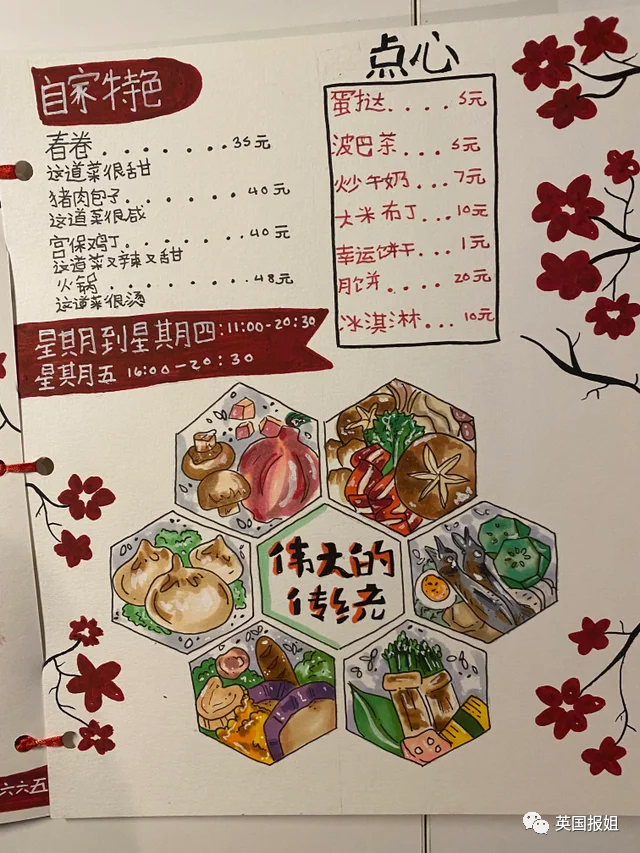 自家特色
春卷.......35元
这道菜很甜
猪肉包子.......40元
这道菜很咸
宫保鸡丁.......40元
这道菜又辣又甜
火锅.......48元
这道菜很烫
星期月到星期四:11:00-20:30
星期五 16:00-20:30
点心
蛋挞....5元
波巴茶...5元
炒午奶...7元
大米布丁...10元
幸运饼干...1元
月饼....20元
冰淇淋...10元
伟大的
传统
六六五
英国报姐